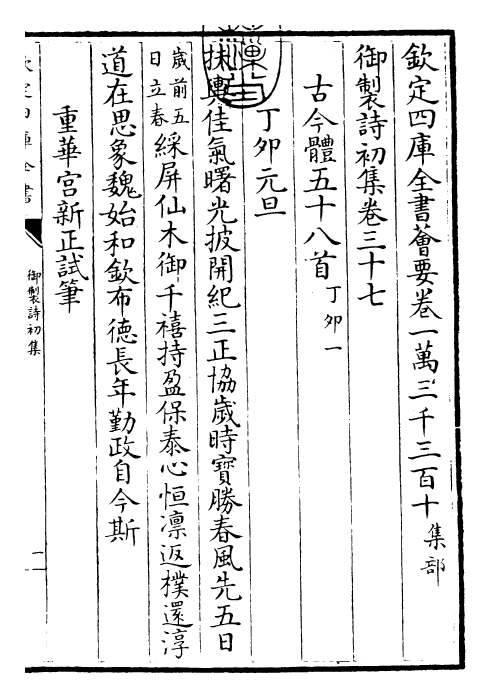 欽定四庫全書薈要卷一萬三千三百十 集部
御製詩初集卷三十七
古今體五十八首 丁卯一
丁卯元旦
扶輿佳氣曙光披開紀三正協歲時寶勝春風先五日
歲前五日立春 綵屏仙木御千禧持盈保泰心恒凛返樸還淳
道在思象魏始和欽布德長年勤政自今斯
重華宫新正試筆
御製詩初集